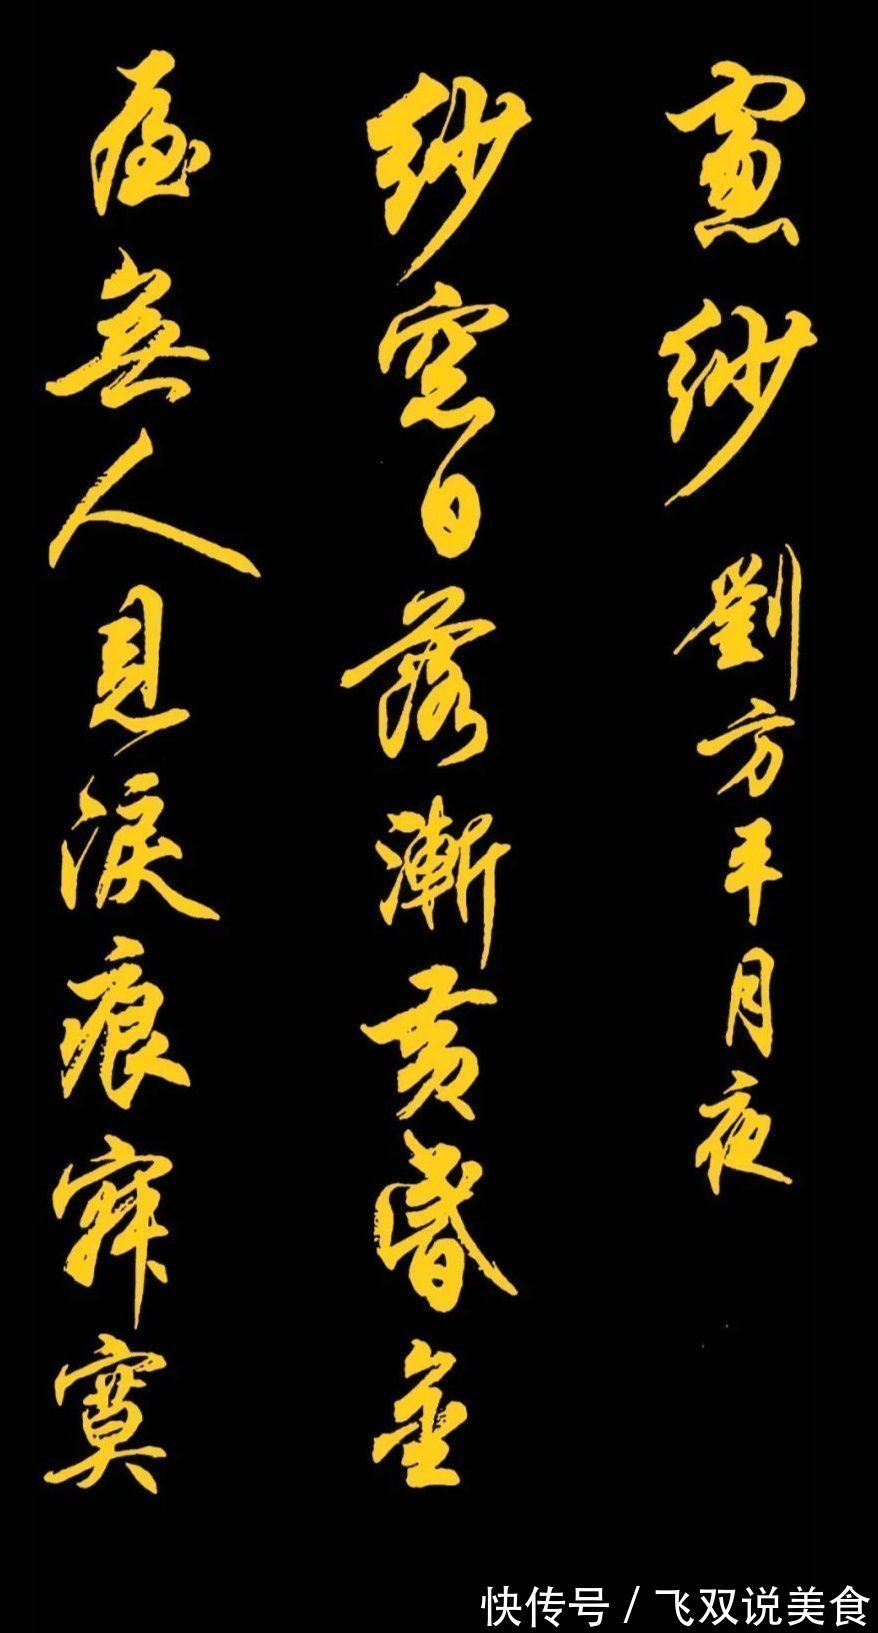 窗纱 劉方平月夜
纱窓日落漸黄昏金
屋無人見淚痕寂寞
快传号 / 飞双说美食